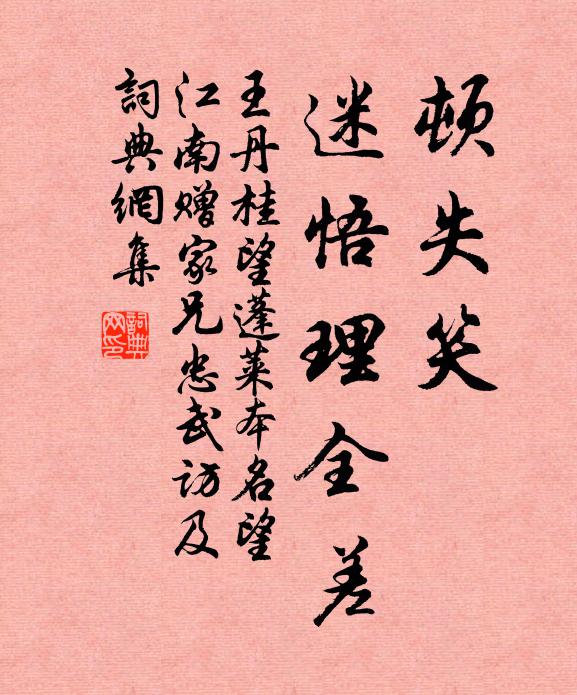 頓失笑
迷悟理全差
王丹桂望蓬莱本名望
江南赠家兄忠武訪及
詞典網集
詞典
网印